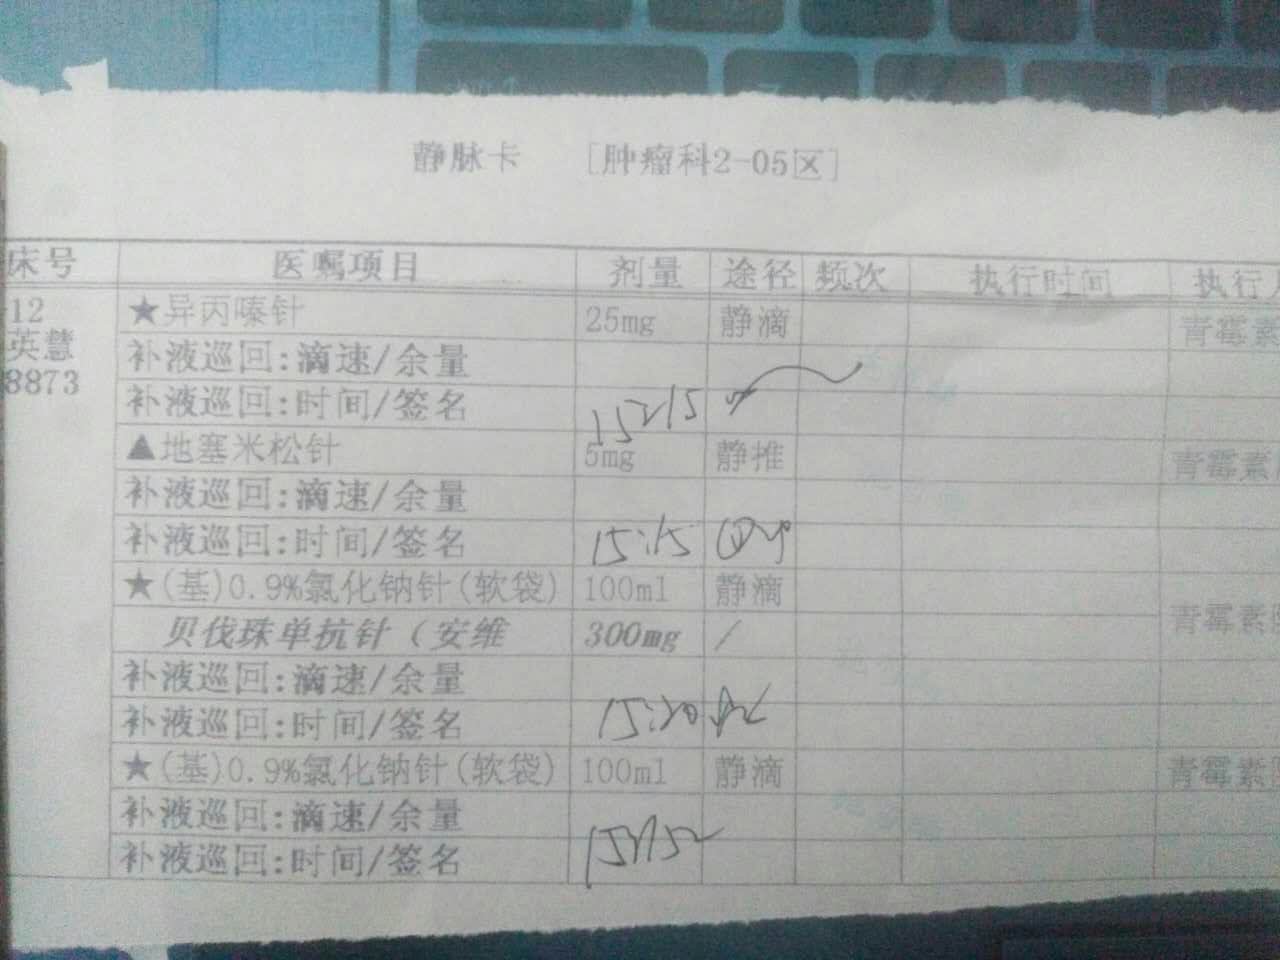 静脉卡 [肿瘤科2-05区]
床号 医嘱项目 剂量 途径 频次 执行时间 执行
12 ★异丙嗪针 25mg 静滴 青霉素
英慧 补液巡回:滴速/余量
8873 补液巡回:时间/签名
▲地塞米松针 5mg 静推 青霉素
补液巡回:滴速/余量
补液巡回:时间/签名 15:15
★(基)0.9%氯化钠针(软袋) 100ml 静滴 青霉素
贝伐珠单抗针(安维 300mg /
补液巡回:滴速/余量
补液巡回:时间/签名 15:20
★(基)0.9%氯化钠针(软袋) 100ml 静滴 青霉素
补液巡回:滴速/余量
补液巡回:时间/签名